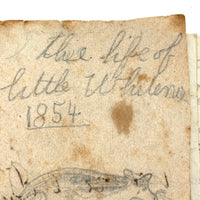 the life of
little Whilemina
1854.